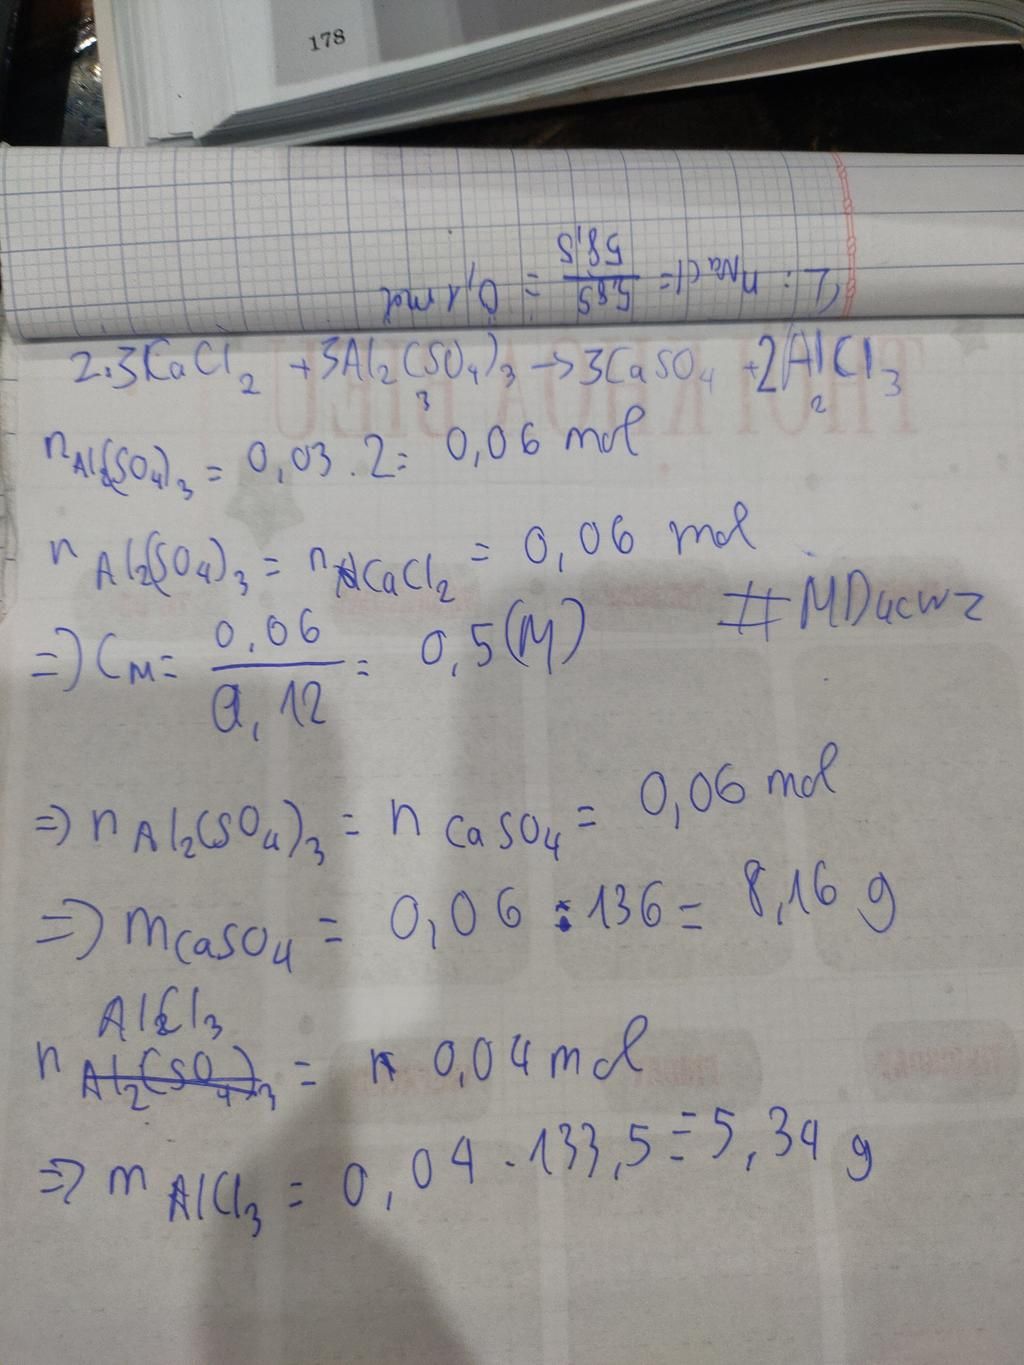 178
2: nNaCl = 5,85/58,5 = 0,1 mol
2. 3CaCl2 + 3Al2(SO4)3 → 3CaSO4 + 2AlCl3
3 2
nAl2(SO4)3 = 0,03 . 2 = 0,06 mol
n Al2(SO4)3 = n CaCl2 = 0,06 mol
#MDucwz
=> CM = 0,06/0,12 = 0,5 (M)
=> n Al2(SO4)3 = n CaSO4 = 0,06 mol
=> m CaSO4 = 0,06 : 136 = 8,16 g
AlCl3
n Al2(SO4)3 = n 0,04 mol
=> m AlCl3 = 0,04 . 133,5 = 5,34 g
THỜI KHÓA BIỂU